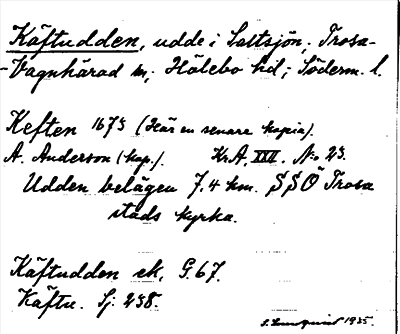 Käftudden, udde i Saltsjön, Trosa-
-Vagnhärad sn; Hölebo hd; Söderm. l.
Keften 1675 (Här en senare kopia).
A. Anderson (kop.). Kr.A. XXI. No 23.
Udden belägen 7,4 km. SSO Trosa
stads kyrka.
Käftudden ek. G.67.
Käftu. Sj: 238.
S. Lundqvist 1935.